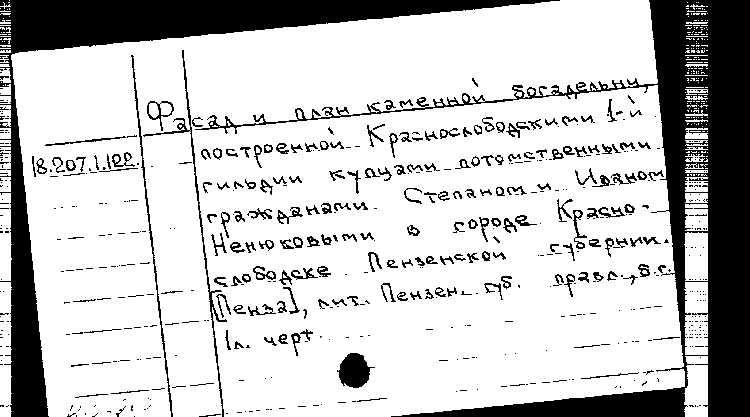 Фасад и план каменной богадельни,
18.207.1.122.
построенной Краснослободскими 1-й
гильдии купцами потомственными
гражданами Степаном и Иваном
Ненюковыми в городе Красно-
слободске Пензенской губернии.
[Пенза], лит. Пензен. губ. правл., б.г.
1л. черт.